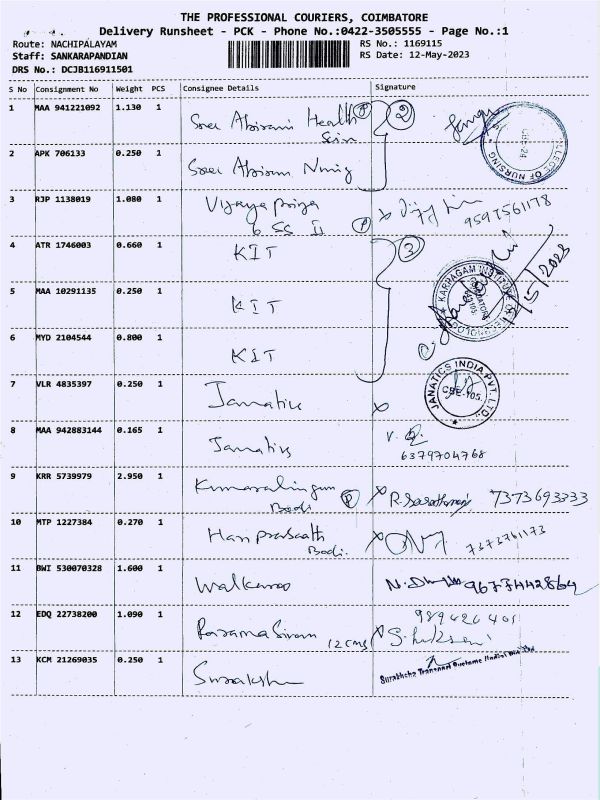 THE PROFESSIONAL COURIERS, COIMBATORE
Delivery Runsheet - PCK - Phone No.:0422-3505555 - Page No.:1
Route: NACHIPALAYAM
RS No.: 1169115
Staff: SANKARAPANDIAN
RS Date: 12-May-2023
DRS No.: DCJB116911501
S No Consignment No Weight PCS Consignee Details Signature
1 MAA 941221092 1.130 1 Sree Abirami Health P 2
2 APK 706133 0.250 1 Sree Abirami
COLLEGE OF NURSING
3 RJP 1138019 1.080 1 Vijaya priya
6 SS II P
9597561178
4 ATR 1746003 0.660 1 KIT 3
5 MAA 10291135 0.250 1 KIT
KARPAGAM INSTITUTE OF TECHNOLOGY
COIMBATORE
6 MYD 2104544 0.800 1 KIT
7 VLR 4835397 0.250 1 Janatics
JANATICS INDIA PVT. LTD.
CBE-105.
8 MAA 942883144 0.165 1 Janatics
6379704768
9 KRR 5739979 2.950 1 Kumaralingam
Bodi P 7373693333
10 MTP 1227384 0.270 1 Hari prasaath
Bodi. 7373761173
11 BWI 530070328 1.600 1 Walkaroo 9677442864
12 EDQ 22738200 1.090 1 Parama Sivam 12 cms
989426401
13 KCM 21269035 0.250 1 Suraksha